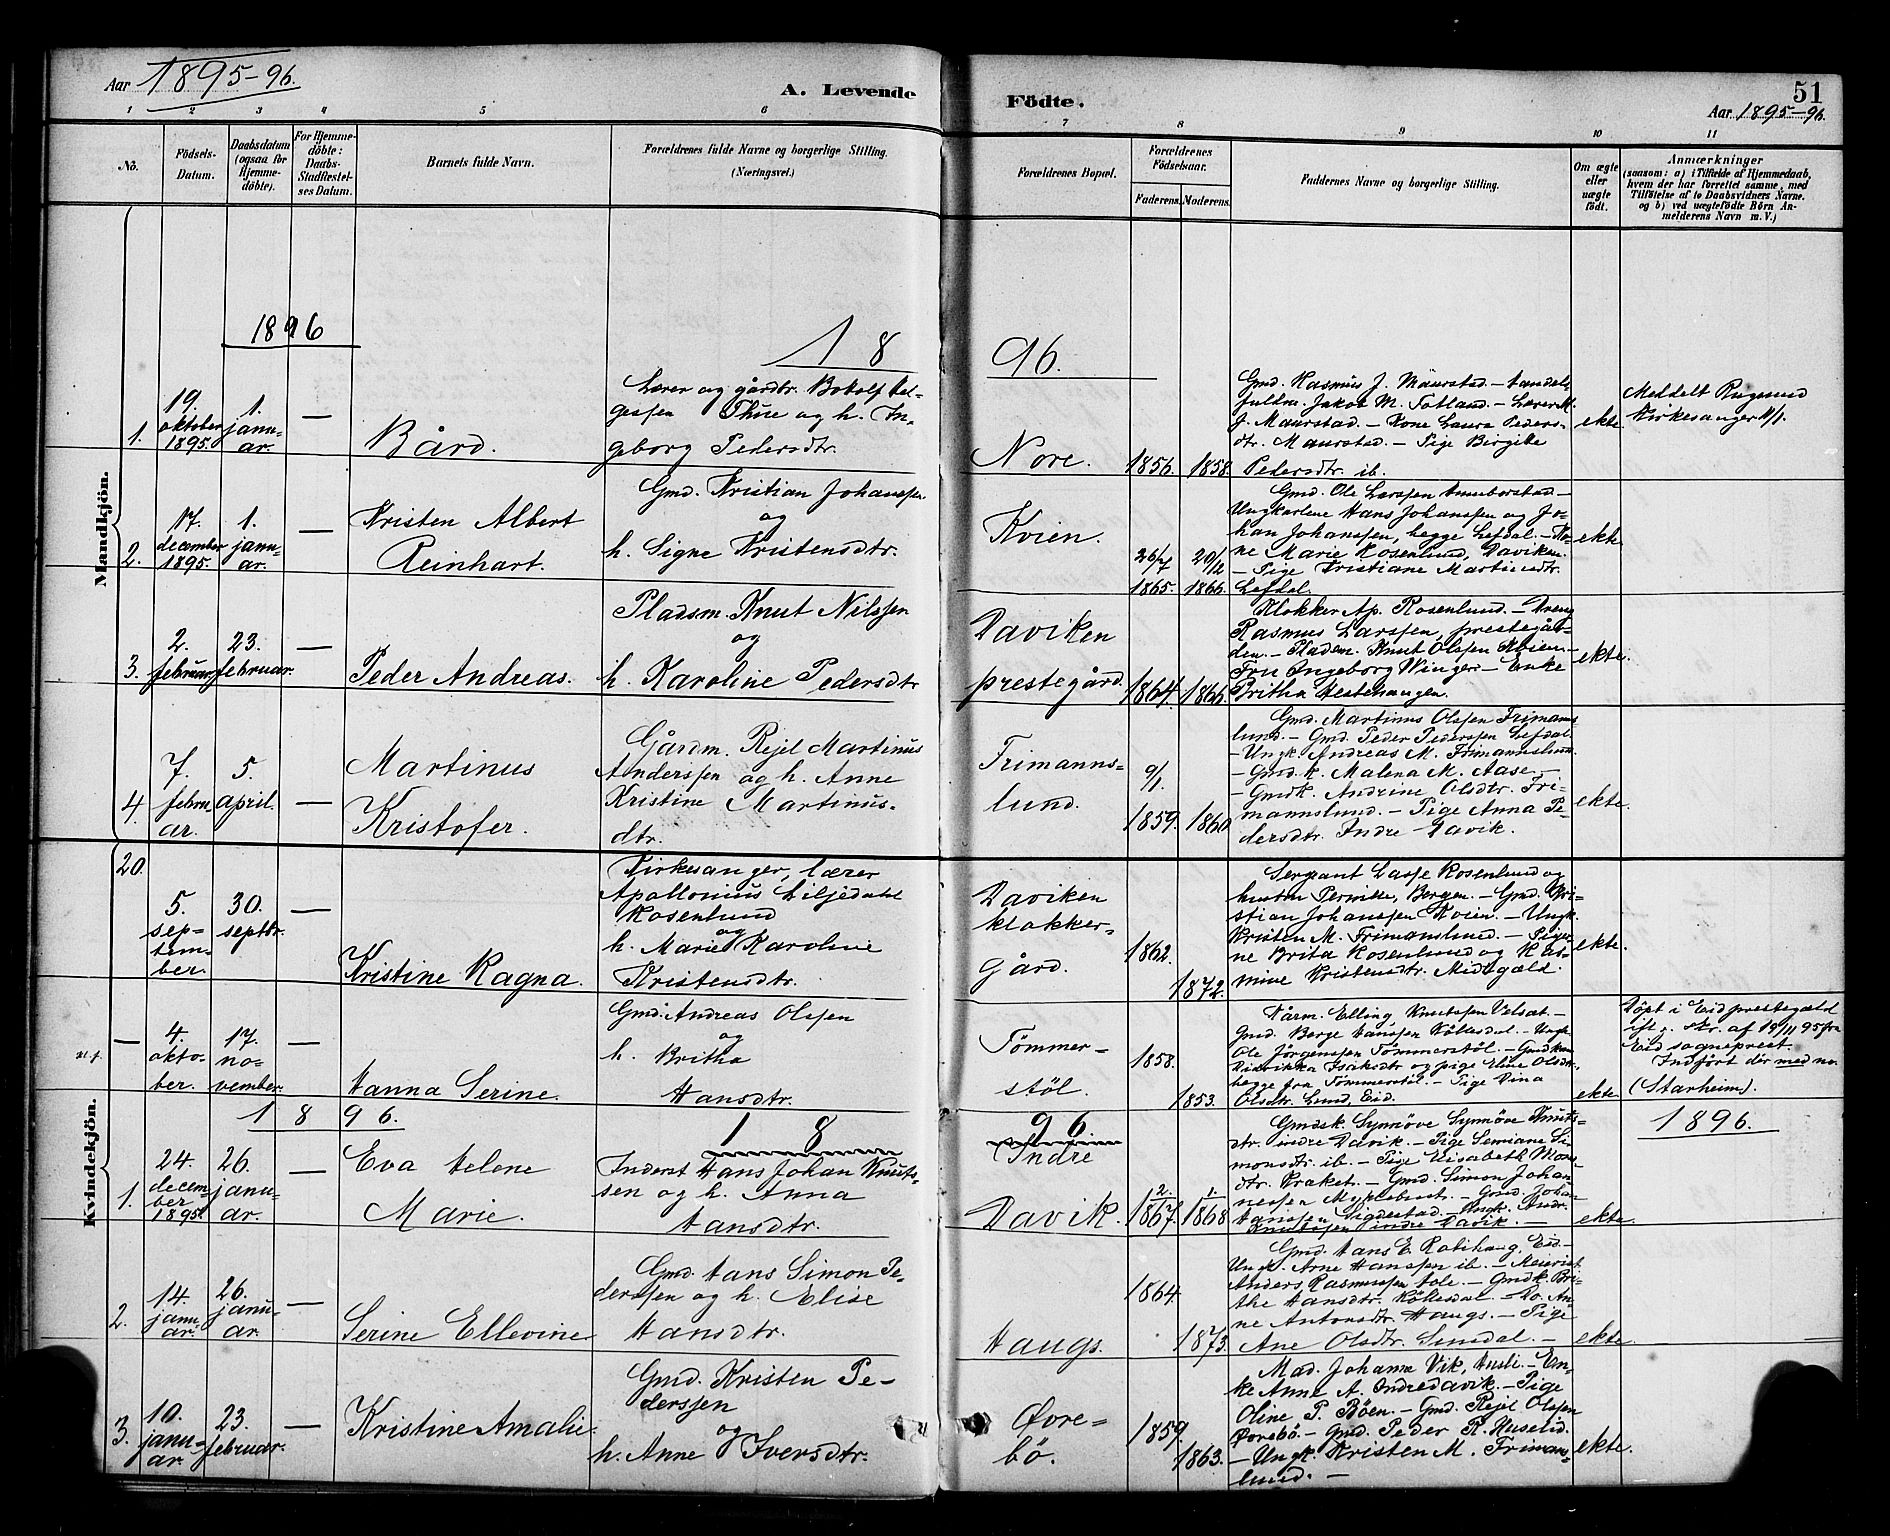 Aar 1895-96.
A. Levende
Födte.
51
Aar 1895-96.
1 2 3 4 5 6 7 8 9 10 11
No.
Födsels-
Datum.
Daabsdatum
(ogsaa for
Hjemme-
döbte).
For Hjemme-
döbte:
Daabs-
Stadfæstel-
ses Datum.
Barnets fulde Navn.
Forældrenes fulde Navne og borgerlige Stilling.
(Næringsvei.)
Forældrenes Bopæl.
Forældrenes
Födselsaar.
Faderens. Moderens.
Faddernes Navne og borgerlige Stilling.
Om ægte
eller
uægte
født.
Anmærkninger
(saasom: a) i Tilfælde af Hjemmedaab,
hvem der har forrettet samme, med
Tilföielse af to Daabsvidners Navne.
og b) ved uægtefödte Börn An-
melderens Navn m. V.)
Mandkjön.
1896
18
96.
1.
19.
oktober
1895.
1.
janu-
ar.
—
Bård.
Lærer og gårdbr. Botolf Hel-
gessen Thue og h. In-
geborg Pedersdtr.
Nore.
1856. 1858.
Gmd. Rasmus J. Maurstad. – Handels-
fuldm. Jakob M. Totland. – Lærer M.
J. Maurstad. – Kone Laura Peders-
dtr. Maurstad. – Pige Birgite
Pedersdtr. ib.
ekte.
Meddelt
Kirkesanger
2.
17.
december
1895.
1.
janu-
ar.
—
Kristen Albert
Reinhart.
Gmd. Kristian Johanssen
og
h. Signe Kristensdtr.
Kvien.
26/7
1865.
20/2
1866.
Gmd. Ole Larssen
Ungkarlene Hans Johanssen og Jo-
han Johanssen, begge Lefdal. – Ko-
ne Marie Rosenlund, Daviken.
– Pige Kristiane Martinusdtr.
Lefdal.
ekte.
3.
2.
februar
23.
februar.
—
Peder Andreas.
Pladsm. Knut Nilssen
og
h. Karoline Pedersdtr
Daviken
prestegård.
1864. 1866.
Klokker Ap. Rosenlund. – Dreng
Rasmus Larssen, prestegår-
den. – Pladsm. Knut Olssen Kvien. –
Fru Ingeborg Winger. – Enke
Britha Hestehaugen.
ekte.
4.
7.
febru-
ar.
5.
april.
—
Martinus
Kristofer.
Gårdm. Kjel Martinus
Anderssen og h. Anne
Kristine Martinus-
dtr.
Frimanns-
lund.
9/1
1859. 1860.
Gmd. Martinus Olssen Frimans-
lund. – Gmd. Peder Pederssen Lefdal.
– Ungk. Andreas M. Frimannslund.
– Gmdk. Malena M. Aase. –
– Gmdk. Andrine Olsdtr. Fri-
mannslund. – Pige Anna Pe-
dersdtr. Indre Davik.
ekte.
Kvindekjön.
20.
5.
sep-
tem-
ber.
30.
septbr.
—
Kristine Ragna.
Kirkesanger, lærer
Apollonius Liljedahl
Rosenlund
og
h. Marie Karoline
Kristensdtr.
Daviken
klokker-
gård.
1862.
1872.
Sergeant Lasse Rosenlund og
hustru Pernike, Bergen. – Gmd. Kri-
stian Johanssen Kvien. – Ungk.
Kristen M. Frimanslund. – Piger-
ne Brita Rosenlund og Kar-
mine Kristensdtr. Midtgåld.
ekte.
—
4.
okto-
ber.
17.
no-
vember.
—
Hanna Serine.
Gmd. Andreas Olssen
og
h. Britha
Hansdtr.
Tømmer-
stöl.
1858.
1853.
Kårm. Elling Knutssen
Gmd. Børge Hanssen – Ungk.
Ole Jörgenssen Tømmerstöl. – Gmdkone
og pige Eline Olsdtr.,
begge fra Tømmerstöl. – Pige Dina
Olsdtr. Lund, Eid.
ekte
Döpt i Eid prestegjeld
ifl. skr. af 18/11 95 fra
Eid sogneprest.
Indført dér med no
(Starheim).
1896.
18
96
1896.
1.
24.
decem-
ber
1895.
26.
janu-
ar.
—
Eva Helene
Marie.
Inderst Hans Johan Knuts-
sen og h. Anna
Hansdtr.
Indre
Davik.
2.
1867.
1.
1868.
Gmdsk. Synnöve Synnöve Knuts-
dtr. indre Davik. – Pige Simiane Si-
monsdtr. ib. – Pige Elisabeth Mons-
dtr. – Gmd. Simon Johan-
nessen Myklebust. – Gmd. Johan
Hanssen Sigdestad. – Ungk. Andr.
Knutssen indre Davik. –
ekte.
2.
14.
janu-
ar.
26.
janu-
ar.
—
Serine Ellevine
Gmd. Hans Simon Pe-
derssen og h. Elise
Hansdtr.
Haugs.
1864.
1873.
Gmd. Hans E. Eid. –
Ungk. Arne Hanssen ib. – Meierist
Anders Rasmussen – Gmdk. Bri-
the Hansdtr. – Do. An-
ne Antonsdtr. Haugs. – Pige
Ane Olsdtr. Sundal. –
ekte
3.
10.
janu-
ar.
23.
februar.
—
Kristine Amalie.
Gmd. Kristen Pe-
derssen
og
h. Anne Iversdtr.
Øvre-
bö.
1859.
1863.
Mad. Johanne Vik, Husli. – En-
ke Anne A. Indredavik. – Pige
Oline P. Böen. – Gmd. Kjel Olssen
Övrebö. – Gmd. Peder R. Huselid.
– Ungk. Kristen M. Friman-
lund. –
ekte.